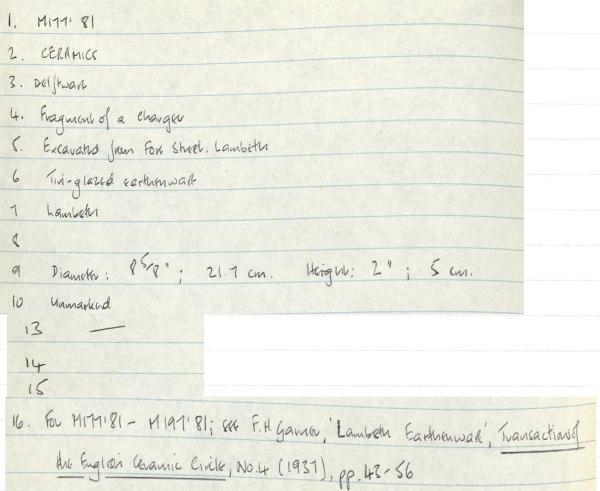 1. M177'81
2. CERAMICS
3. Delftware
4. Fragment of a charger
5. Excavated from Fore Street. Lambeth
6 Tin-glazed earthenware
7 Lambeth
8
9 Diameter: 8 5/8"; 21.7 cm. Height: 2"; 5 cm.
10 Unmarked
13 —
14
15
16. For M177'81 - M197'81; see F.H. Garner, 'Lambeth Earthenware', Transactions of
the English Ceramic Circle, No.4 (1937), pp. 43-56